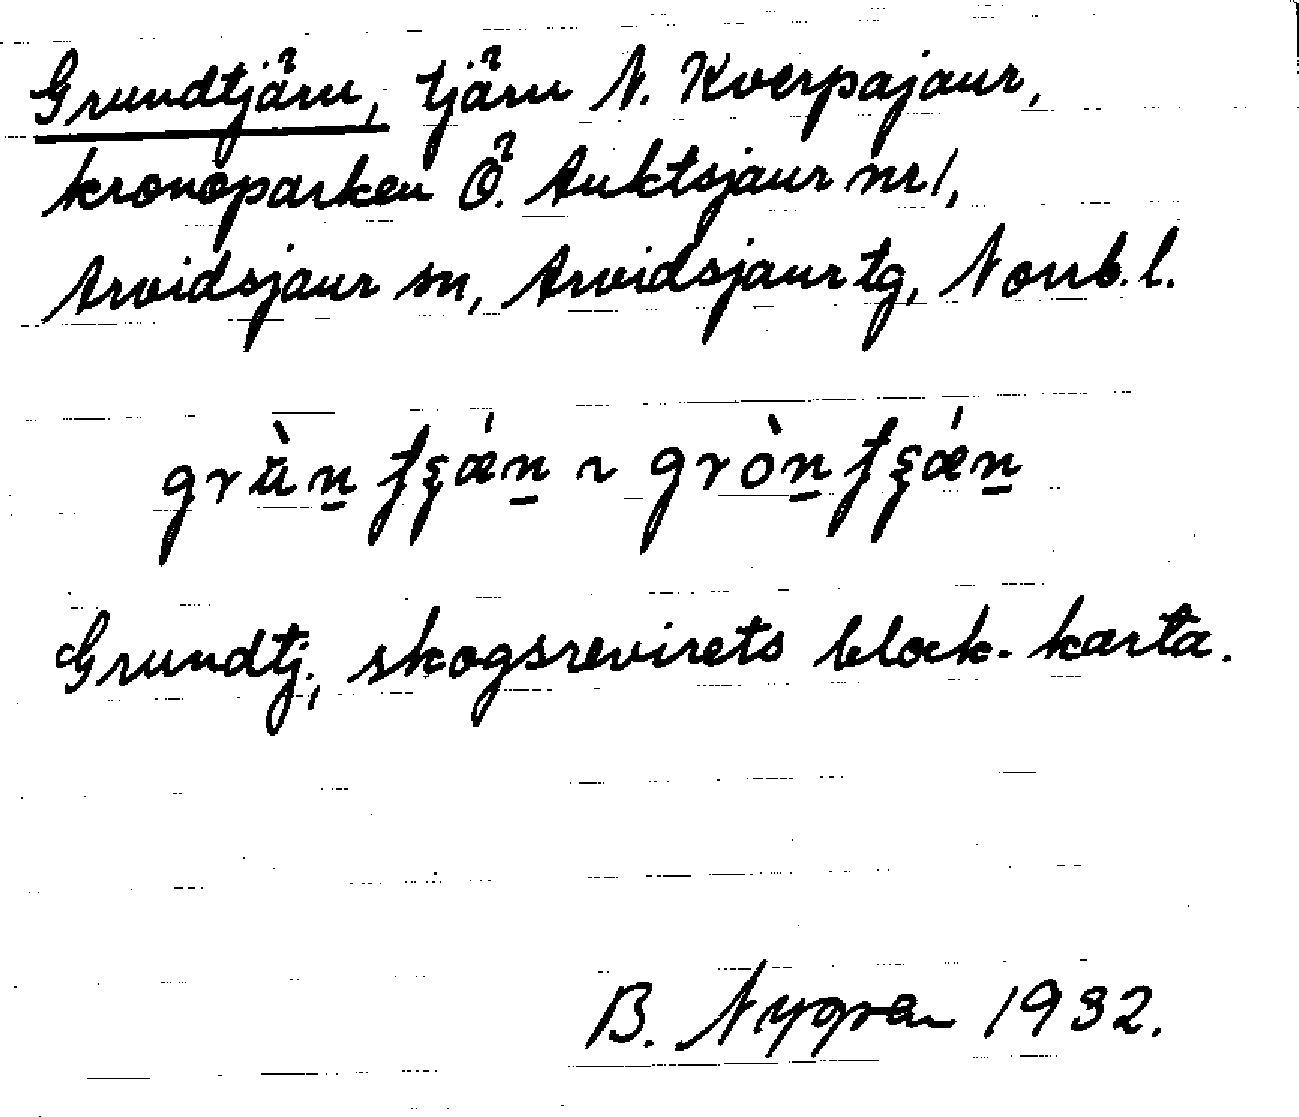 Grundtjärn, tjärn N. Kverpajaur,
kronoparken Ö. Auktsjaur nr 1,
Arvidsjaur sn, Arvidsjaur tg, Norrb. l.
grùn tʂǽn ~ gròn tʂǽn
Grundtj., skogsrevirets block-karta.
B. Nygren 1932.